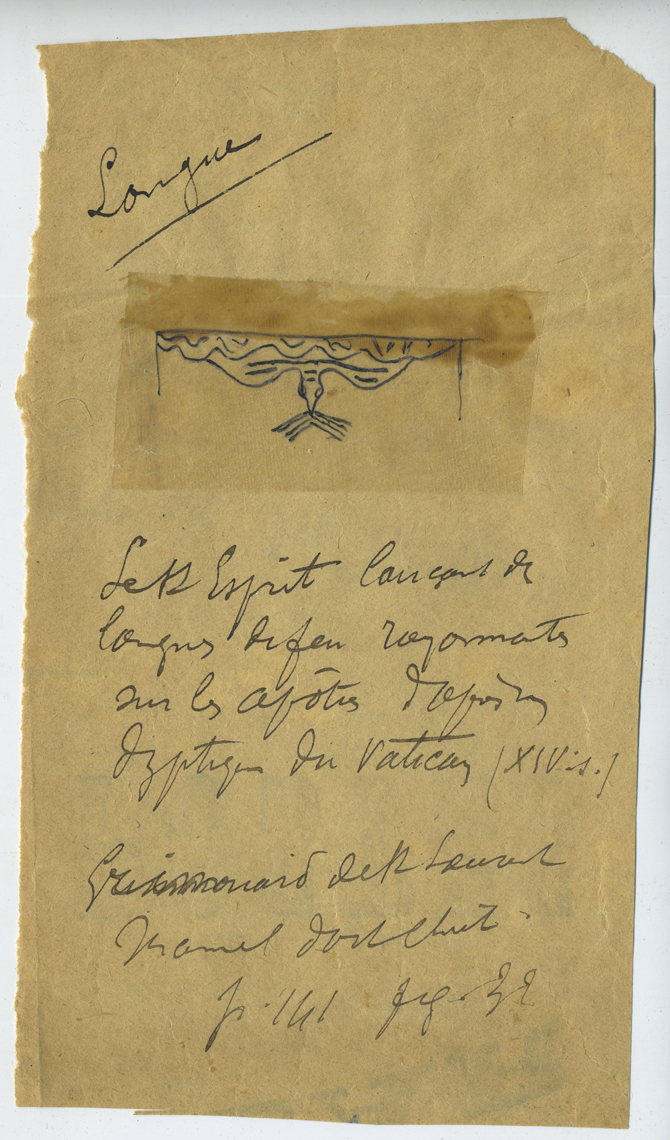 Langue
Le St Esprit lançant de
langues de feu rayonnantes
sur les apôtres d'après
dyptique du Vatican (XIV s.)
Grimouard de St Laurent
Manuel d'art Chret.
p. 141 fig.